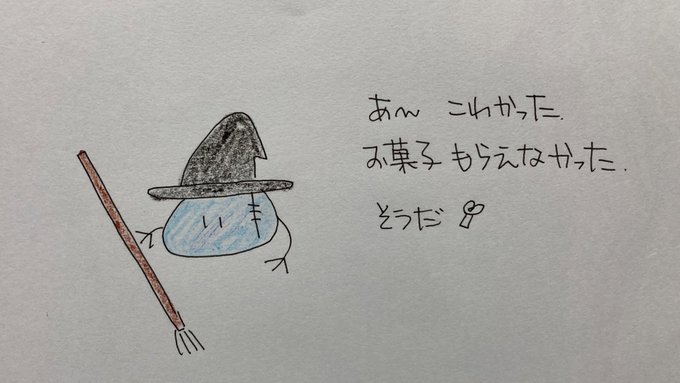 あ〜 こわかった.
お菓子 もらえなかった.
そうだ